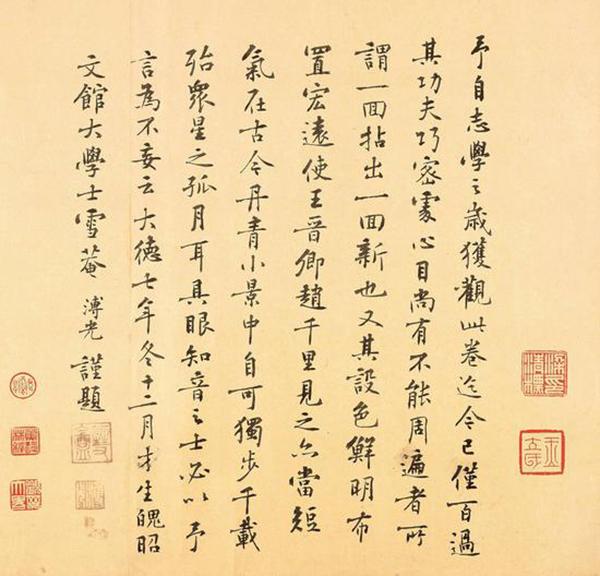 予自志學之歲獲觀此卷迄今已僅百過
其功夫巧密處心目尚有不能周遍者所
謂一囬拈出一囬新也又其設色鮮明布
置宏遠使王晉卿趙千里見之亦當短
氣在古今丹青小景中自可獨步千載
殆眾星之孤月耳具眼知音之士必以予
言為不妄云大德七年冬十二月才生魄昭
文館大學士雪菴溥光謹題